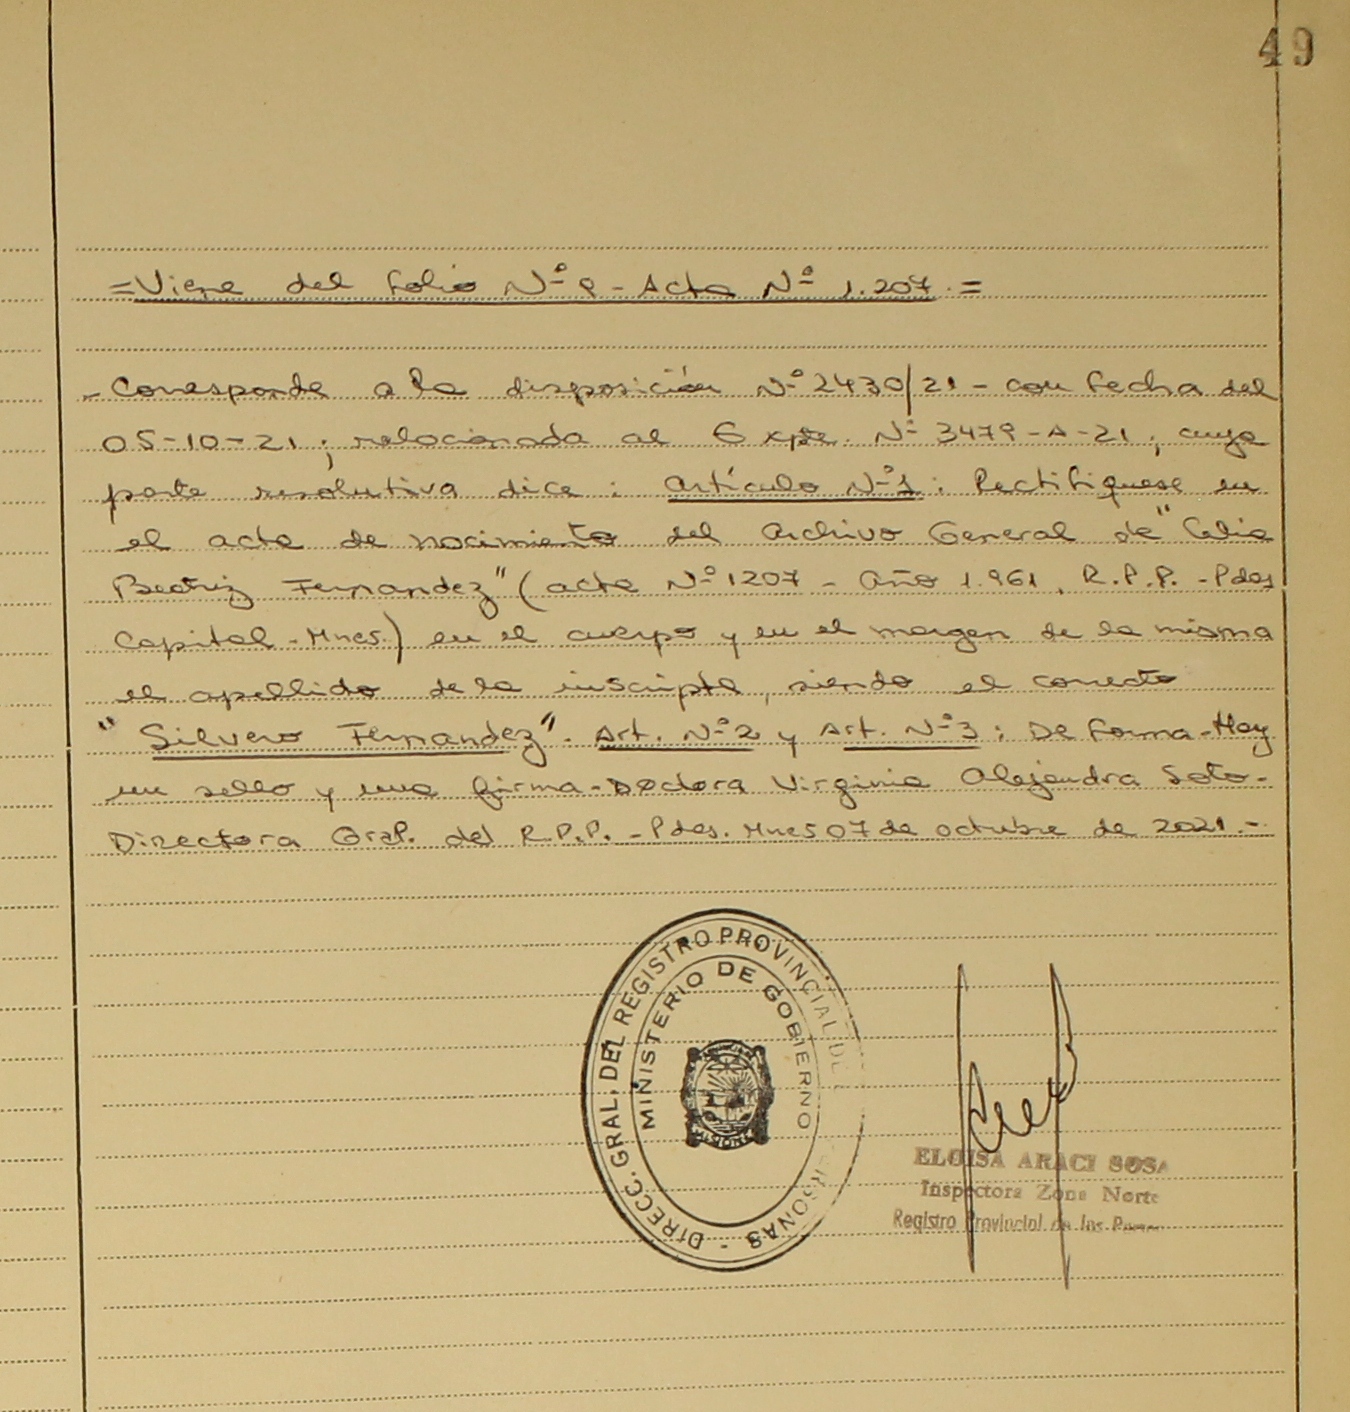 49
=Viene del folio Nº 9 - Acta Nº 1.207.=
- Corresponde a la disposición Nº 2430/21 - con fecha del
05-10-21; relacionada al Expte. Nº 3479-A-21; cuya
parte resolutiva dice: Artículo Nº1: Rectifiquese en
el acta de nacimiento del Archivo General de "Celia
Beatriz Fernandez" (acta Nº 1207 - Año 1.961. R.P.P. - Pdas
Capital - Mnes.) en el cuerpo y en el margen de la misma
el apellido de la inscripta, siendo el correcto
"Silvero Fernandez". Art. Nº2 y Art. Nº3: De forma - Hay
un sello y una firma - Doctora Virginia Alejandra Soto -
Directora Gral. del R.P.P. - Pdas. Mnes 07 de octubre de 2021.-
DIRECC. GRAL. DEL REGISTRO PROVINCIAL DE PERSONAS -
MINISTERIO DE GOBIERNO
MISIONES
ELOISA ARACI SOSA
Inspectora Zona Norte
Registro Provincial de las Personas